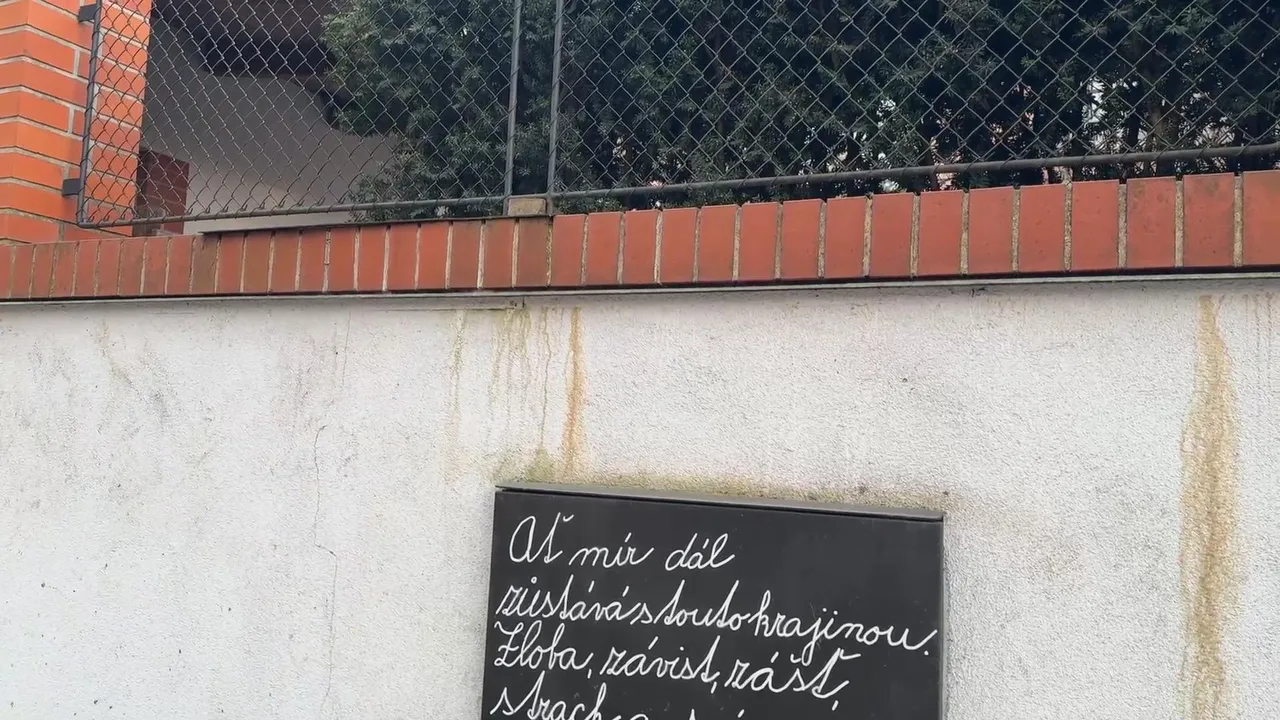 Ať mír dál
zůstává s touto krajinou.
Zloba, závist, zášť,
strach a